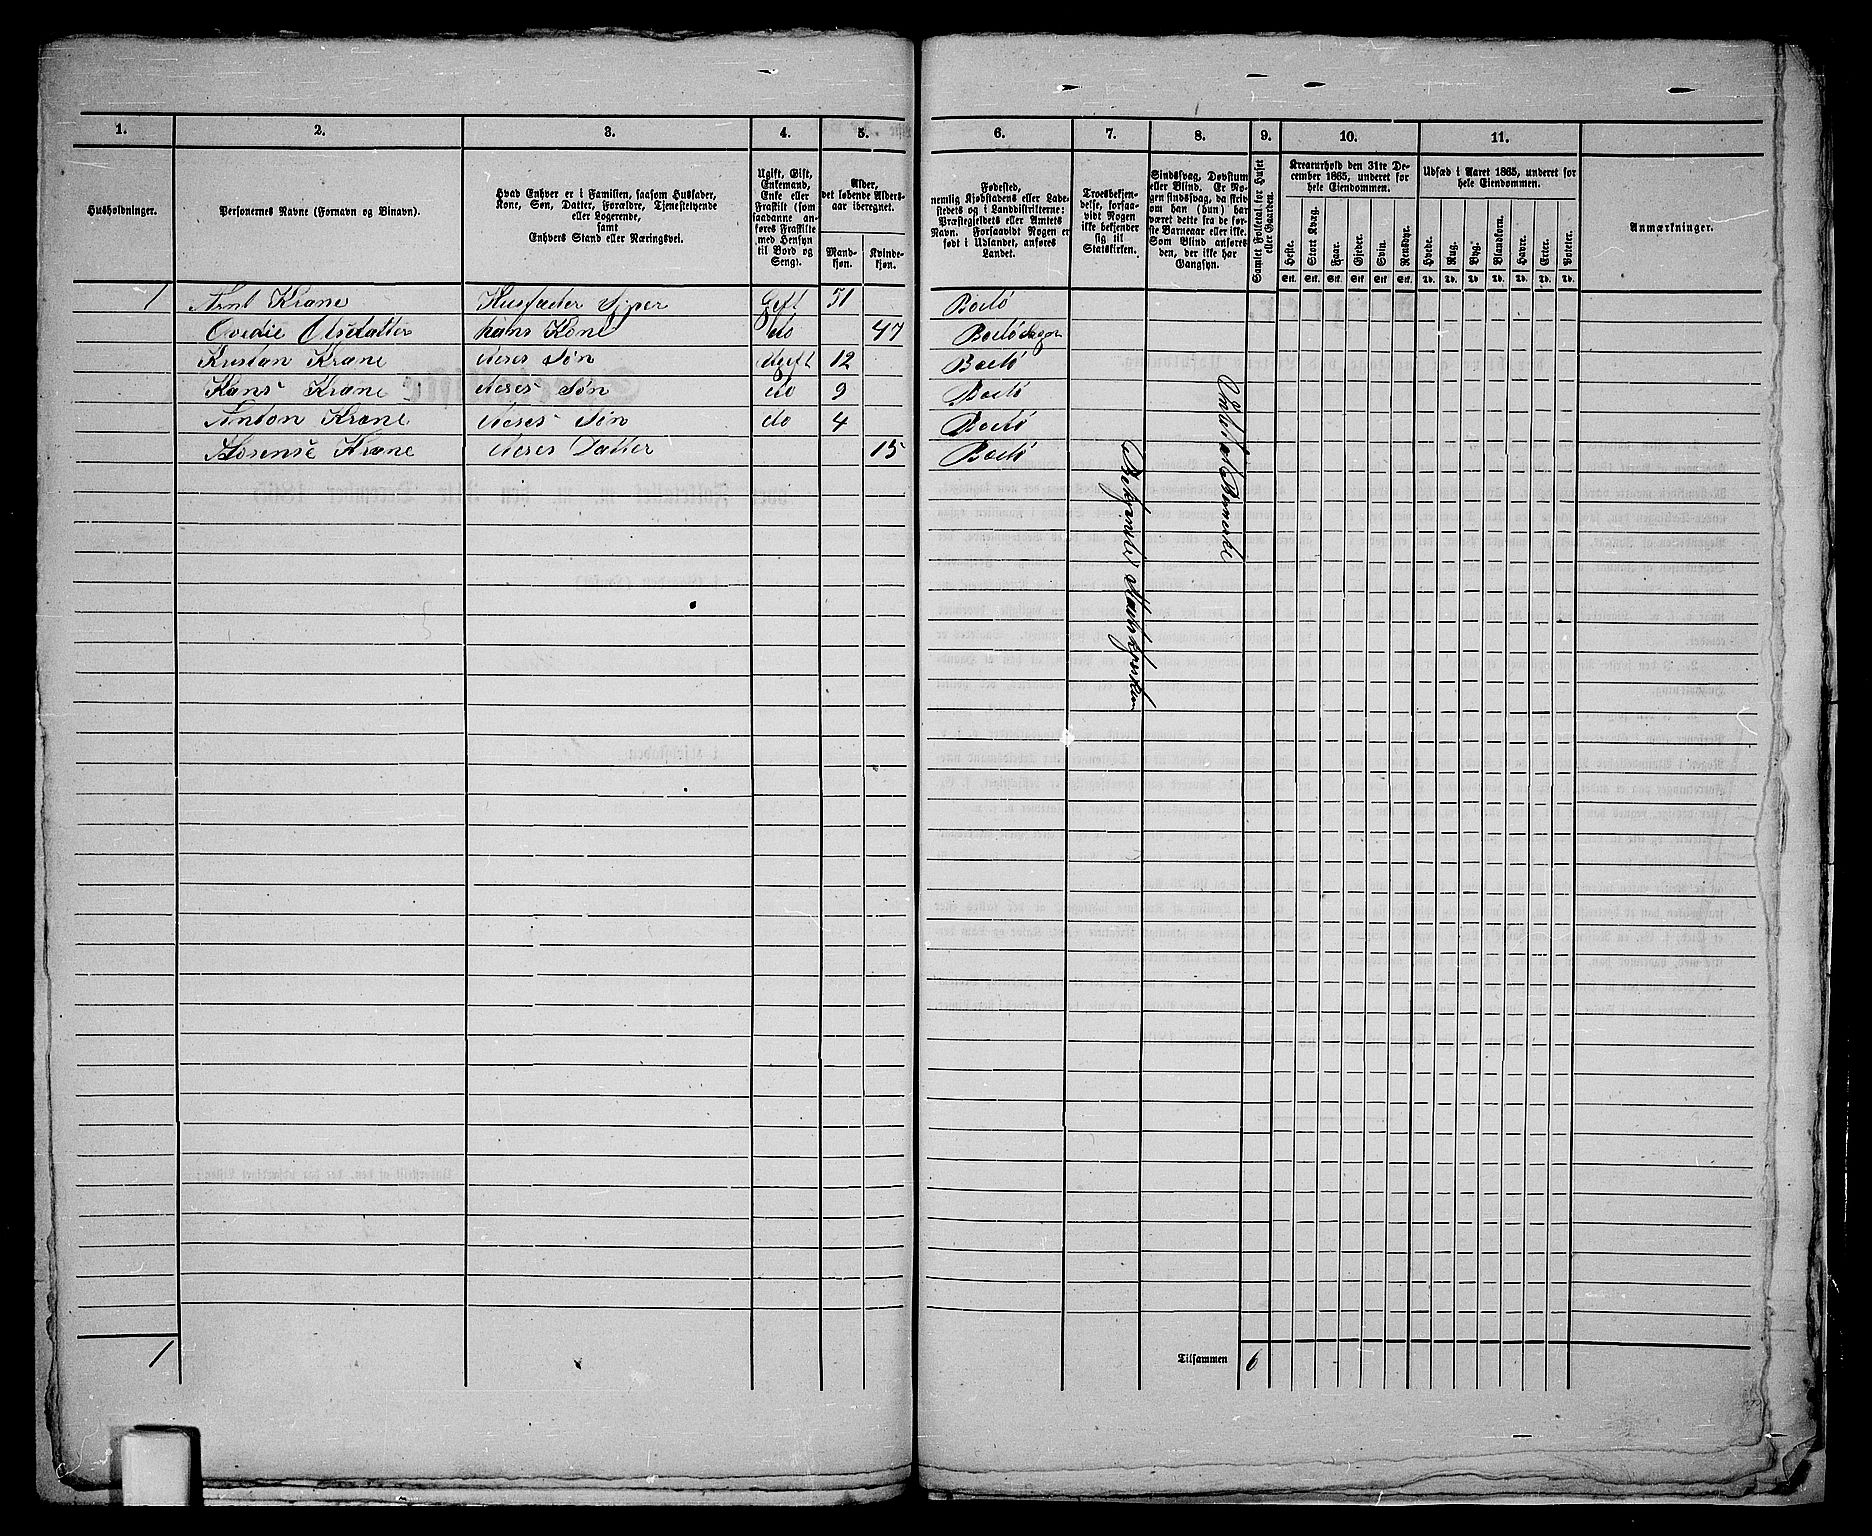 1. 2. 3. 4. 5. 6. 7. 8. 9. 10. 11.
Husholdninger.
Personernes Navne (Fornavn og Binavn).
Hvad Enhver er i Familien, saasom Husfader,
Kone, Søn, Datter, Forældre, Tjenestetyende
eller Logerende,
samt
Enhvers Stand eller Næringsvei.
Ugift, Gift,
Enkemand,
Enke eller
Fraskilt (som
saadanne an-
føres Fraskilte
med Hensyn
til Bord og
Seng).
Alder,
det løbende Alders-
aar iberegnet.
Mand-
kjøn.
Kvinde-
kjøn.
Fødested,
nemlig Kjøbstadens eller Lade-
stedets og i Landdistrikterne:
Præstegjeldets eller Amtets
Navn. Forsaavidt Nogen er
født i Udlandet, anføres
Landet.
Troesbekjen-
delse, forsaa-
vidt Nogen
ikke bekjender
sig til
Statskirken.
Sindssvag, Døvstum
eller Blind. Er No-
gen sindssvag, da skriv
om han (hun) har
været dette fra de før-
ste Barneaar eller ikke.
Som Blind anføres
den, der ikke har
Gangsyn.
Samlet Folketal for Huset
eller Gaarden.
Kreaturhold den 31te De-
cember 1865, underet for
hele Eiendommen.
Heste. Stort Kvæg. Faar. Gjeder. Svin. Rensdyr.
Stk. Stk. Stk. Stk. Stk. Stk.
Udsæd i Aaret 1865, underet for
hele Eiendommen.
Hvede. Rug. Byg. Blandkorn. Havre. Erter. Poteter.
Td. Td. Td. Td. Td. Td. Td.
Anmærkninger.
1 Arnt Krane Husfader Gift 51 Bodø
Olsdatter hans Kone do 47 Bodø Sogn
Kristan Krane deres Søn Ugift 12 Bodø
Hans Krane deres Søn do 9 Bodø
Anton Krane deres Søn do 4 Bodø
Krane deres Datter 15 Bodø
1 Tilsammen 6